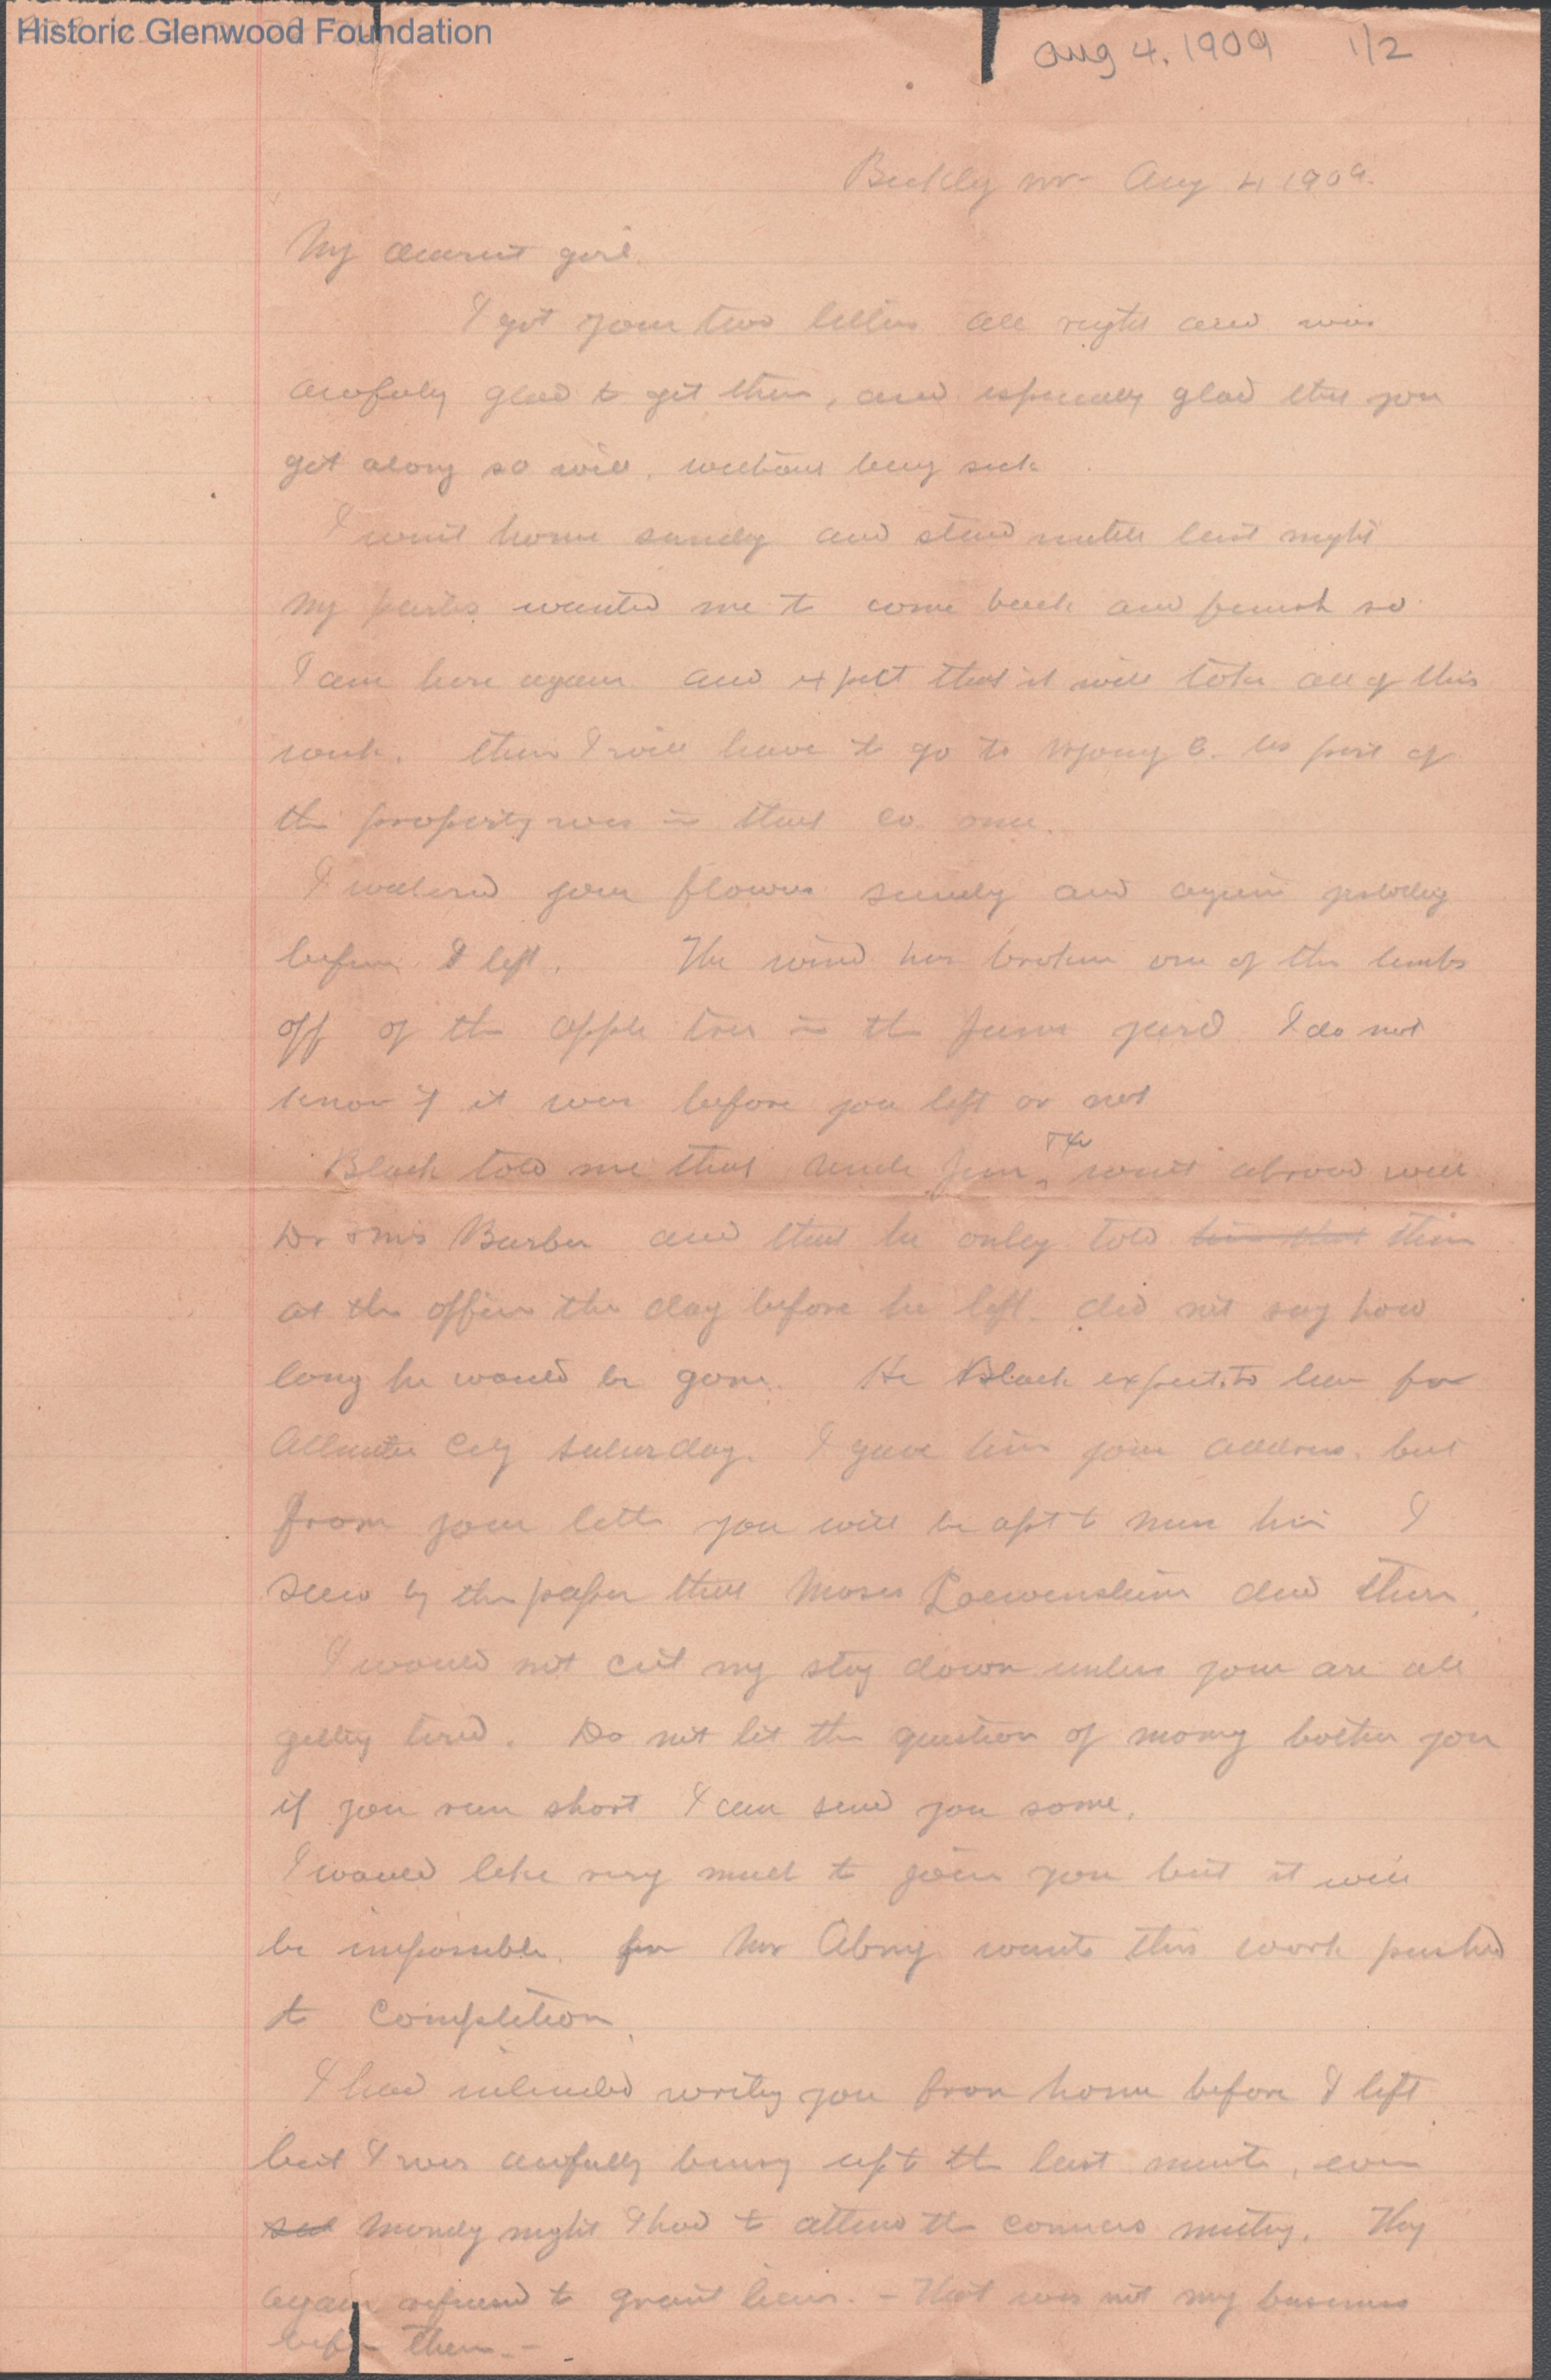 Historic Glenwood Foundation
Aug 4. 1909 1/2
Beckley W Va Aug 4 1909.
My dearest girl.
I got your two letters all right and was
awfuly glad to get them, and especially glad that you
got along so well, without being sick
I went home sunday and staid untill last night
My parties wanted me to come back and finish so
I am here again and expect that it will take all of this
week. then I will have to go to Wyoming C. as part of
the property was in that co once.
I watered your flowers sunday and again yesterday
before I left. The wind has broken one of the limbs
off of the apple tree in the yard I do not
know if it was before you left or not
Black told me that Uncle Jim went abroad with
Dr & Mrs Barber and that he only told him that them
at the office the day before he left did not say how
long he would be gone. He Black expects to leave for
Atlantic City saturday. I gave him your address. but
from your letter you will be apt to miss him I
seen by the paper that Moses Loewenstein died there.
I would not cut my stay down unless your are all
getting tired. Do not let the question of money bother you
if you run short I can send you some.
I would like very much to join you but it will
be impossible. for Mr Abney wants this work pushed
to completion.
I had intended writing you from home before I left
but I was awfully busy up to the last minute, even
Monday night I had to attend the meeting. They
again refused to grant - That was not my business
before them. -